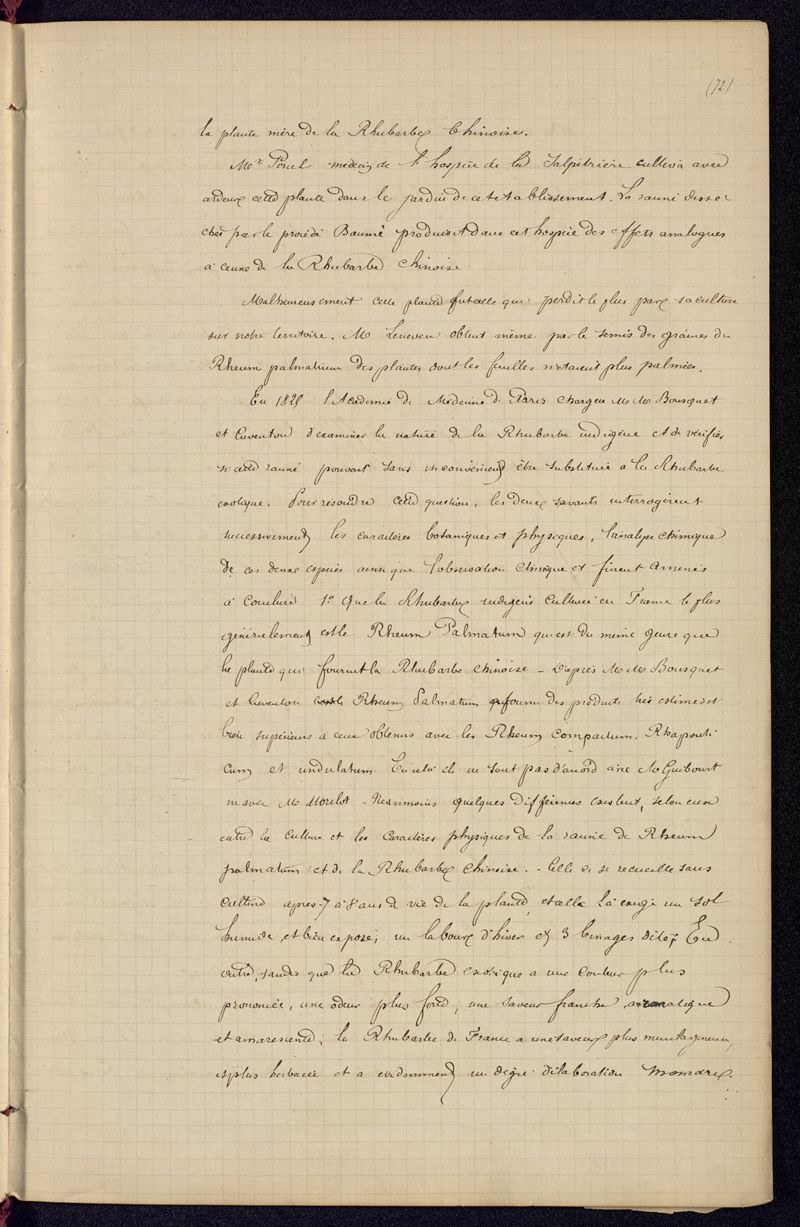 (72)
la plante mère de la Rhubarbe Chinoise.
Mr Pinel médecin de l'hospice de la Salpêtrière cultiva avec
ardeur cette plante dans le jardin de cet établissement. La racine dessé
chée par le procédé Baumé produisit dans cet hospice des effets analogues
à ceux de la Rhubarbe Chinoise
Malheureusement cette plante fut celle qui perdit le plus par sa culture
sur notre territoire. M obtint même par le semis des graines du
Rheum palmatum des plantes dont les feuilles n'étaient plus palmées.
En l'Académie de Médecine de Paris chargea MM. Bousquet
et Caventou d'examiner la nature de la Rhubarbe indigène et de vérifier
si cette racine pouvait sans inconvénient être substituée à la Rhubarbe
exotique. Pour résoudre cette question, les deux savants interrogèrent
successivement les caractères botaniques et physiques, l'analyse chimique
de ces deux espèces ainsi que l'observation clinique et furent amenés
à conclure 1º Que la Rhubarbe indigène cultivée en France le plus
généralement est le Rheum Palmatum qui est du même genre que
la plante qui fournit la Rhubarbe Chinoise _ D'après M M. Bousquet
et Caventou le Rheum Palmatum fournit des produits très estimés et
bien supérieurs à ceux obtenus avec les Rheum Compactum, Rhaponti
cum et undulatum. En cela ils ne sont pas d'accord avec Mr Guibourt
ni avec Mr Morelot _ Néanmoins quelques différences existent, selon eux
entre la culture et les caractères physiques de la racine de Rheum
palmatum et de la Rhubarbe Chinoise. - Celle ci se recueille sans
culture après 7 à 8 ans de vie de la plante, et celle là exige un sol
humide, et bien exposé, un labour d'hiver et 3 binages d'été; En
outre, tandis que la Rhubarbe exotique a une couleur plus
prononcée, une odeur plus forte, une saveur franche, aromatique
et amarescente; la Rhubarbe de France a une saveur plus mucilagineuse,
et plus herbacée et a évidemment un degré d'élaboration moindre